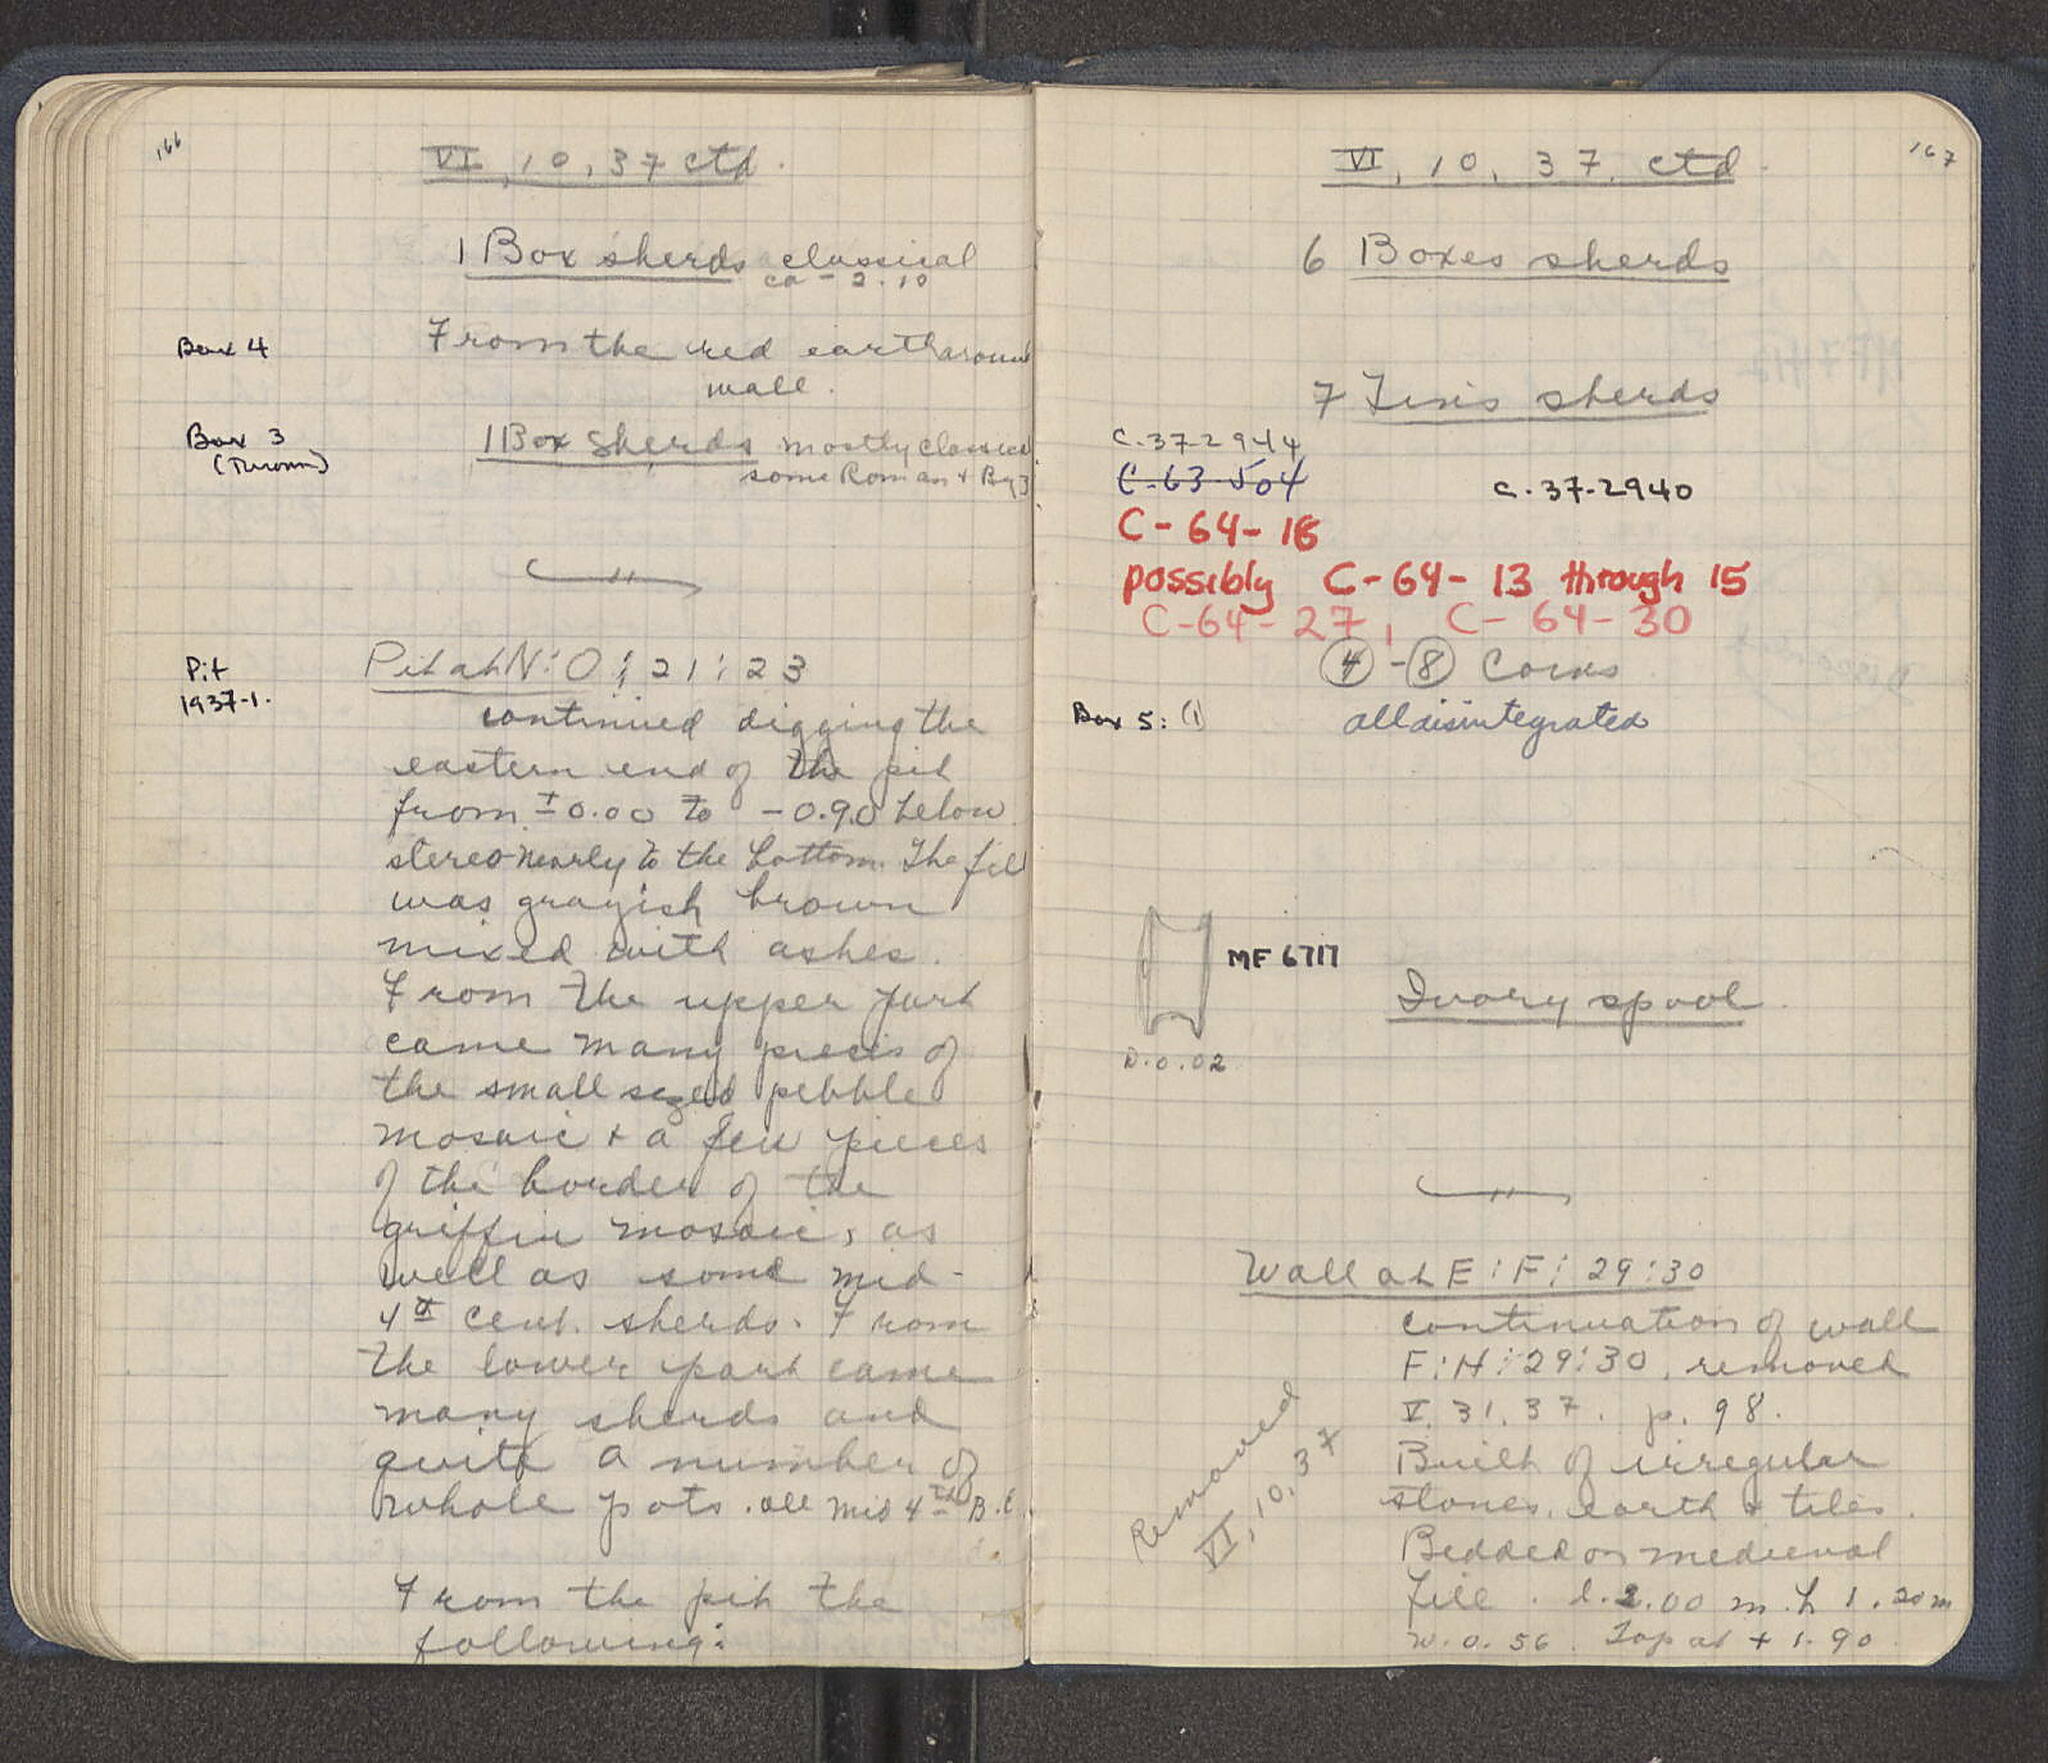 166
VI, 10, 37 ctd.
1 Box sherds classical
ca - 2.10
Box 4
From the red earth around
wall.
Box 3
(Thrown)
1 Box sherds mostly classical
some Roman + Byz
Pit
1937-1.
Pit at N:O; 21:23
continued digging the
eastern end of the pit
from ±0.00 to -0.90 below
stereo nearly to the bottom. The fill
was grayish brown
mixed with ashes.
From the upper part
came many pieces of
the small sized pebble
mosaic + a few pieces
of the border of the
griffin mosaic, as
well as some mid-
4th cent. sherds. From
the lower part came
many sherds and
quite a number of
whole pots. all mid 4th B.C.
From the pit the
following:
167
VI, 10, 37. ctd.
6 Boxes sherds
7 Tins sherds
C.37-2944
C-63-504
C.37-2940
C-64-18
possibly C-64-13 through 15
C-64-27, C-64-30
4 - 8 Coins
Box 5: (1)
all disintegrated
MF 6717
Ivory spool.
D.0.02
Wall at E:F: 29:30
continuation of wall
F:H: 29:30, removed
V. 31. 37. p. 98.
Built of irregular
stones, earth + tiles.
Bedded on medieval
fill. l. 2.00 m. h 1.20m
w. 0.56. Top at + 1.90
Removed
VI, 10, 37